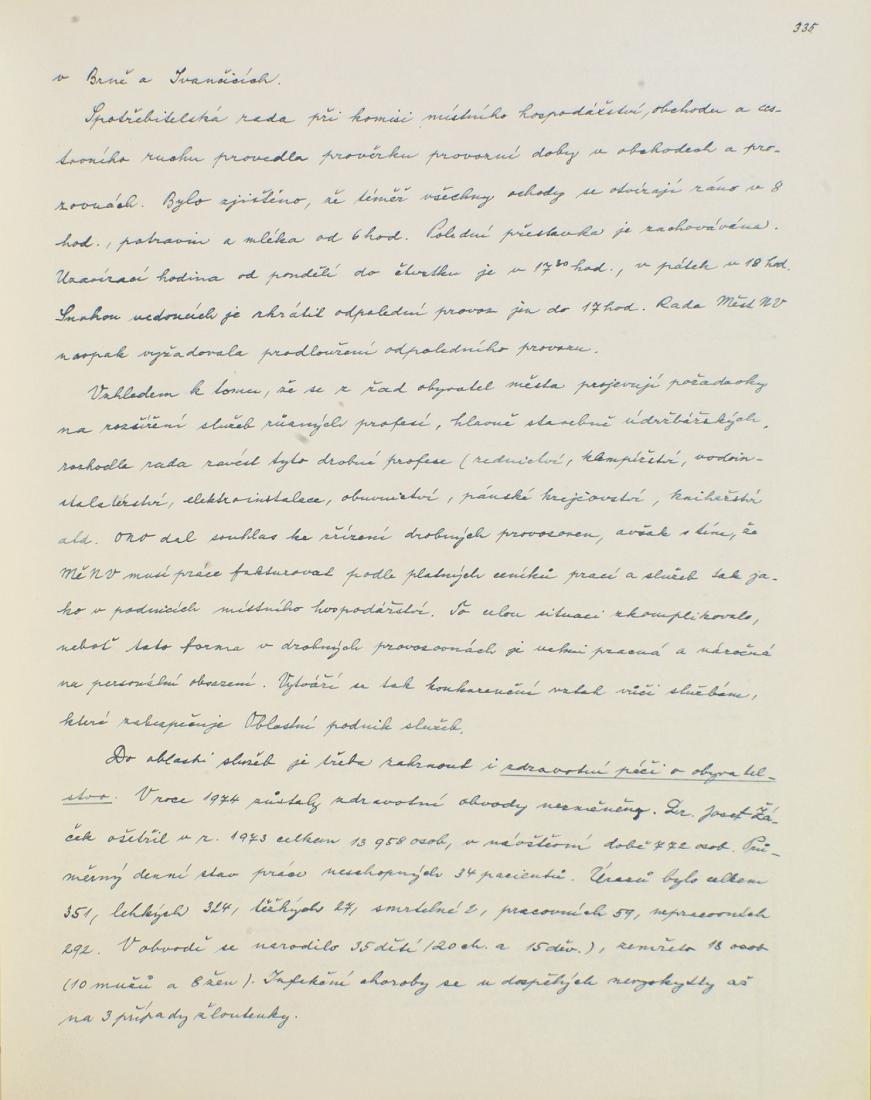 335
v Brně a Ivančicích.
Spotřebitelská rada při komisi místního hospodářství, obchodu a ces-
tovního ruchu provedla prověrku provozní doby v obchodech a pro-
vovnách. Bylo zjištěno, že téměř všechny ochody se otvírají ráno v 8
hod., potravin a mléka od 6 hod. Polední přestávka je zachovávána.
Uzavírací hodina od pondělí do čtvrtku je v 17³⁰ hod., v pátek v 18 hod.
Snahou vedoucích je zkrátit odpolední provoz jen do 17 hod. Rada Měst NV
naopak vyžadovala prodloužení odpoledního provozu.
Vzhledem k tomu, že se z řad obyvatel města projevují požadavky
na rozšíření služeb různých profesí, hlavně stavebně údržbářských,
rozhodla rada zavést tyto drobné profese (zednictví, klempířství, vodoin-
stalatérství, elektroinstalace, obuvnictví, pánské krejčovství, knihařství
atd. ONV dal souhlas ke zřízení drobných provozoven, avšak s tím, že
MěNV musí práce fakturovat podle platných ceníků prací a služeb tak ja-
ko v podnicích místního hospodářství. To celou situaci zkomplikovalo,
neboť tato forma v drobných provozovnách je velmi pracná a náročná
na personální obsazení. Vytváří se tak konkurenční vztah vůči službám,
které zabezpečuje Oblastní podnik služeb.
Do oblasti služeb je třeba zahrnout i zdravotní péči o obyvatel-
stvo. V roce 1974 zůstaly zdravotní obvody nezměněny. Dr. Josef Žá-
ček ošetřil v r. 1973 celkem 13 958 osob, v návštěvní době 772 osob. Prů-
měrný denní stav práce neschopných 34 pacientů. Úrazů bylo celkem
351, lehkých 324, těžkých 27, smrtelné 2, pracovních 59, nepracovních
292. V obvodě se narodilo 35 dětí (20 ch. a 15 děv.), zemřelo 18 osob
(10 mužů a 8 žen). Infekční choroby se u dospělých nevyskytly až
na 3 případy žloutenky.